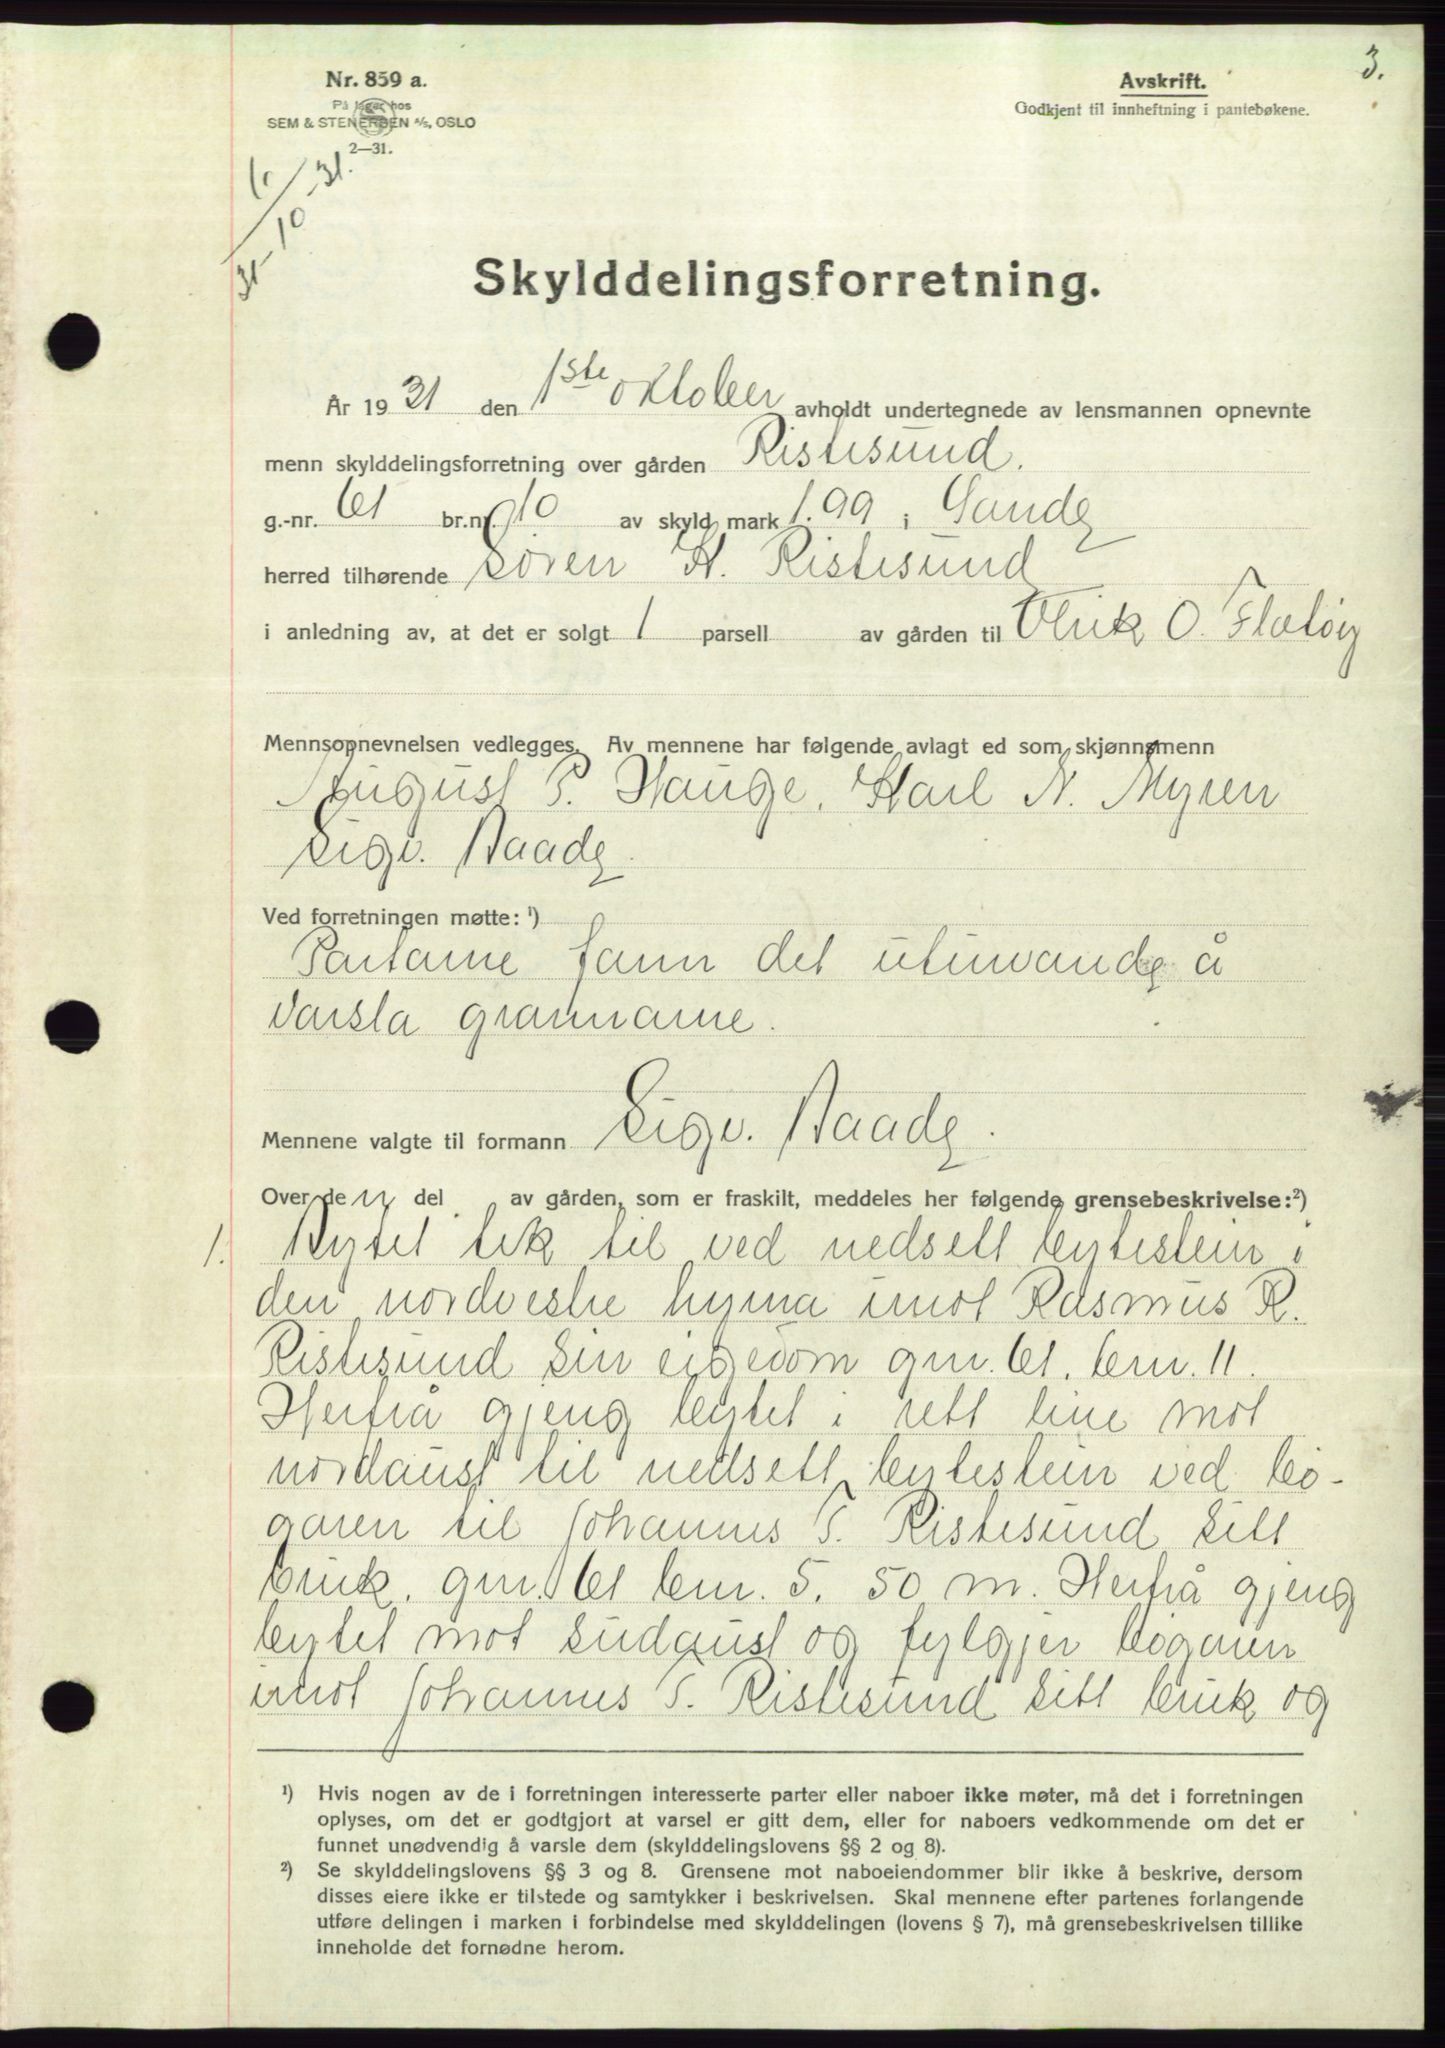 3.
Nr. 859 a.
På lager hos
SEM & STENERSEN A/S, OSLO
2—31.
Avskrift.
Godkjent til innheftning i pantebøkene.
31-10-31.
Skylddelingsforretning.
År 1931 den 1ste oktober avholdt undertegnede av lensmannen opnevnte
menn skylddelingsforretning over gården Ristesund.
g.-nr. 61 br.nr. 10 av skyld mark 1.99 i Sande
herred tilhørende Søren H. Ristesund
i anledning av, at det er solgt 1 parsell av gården til O. Flatøy
Mennsopnevnelsen vedlegges. Av mennene har følgende avlagt ed som skjønnsmenn
August P. Hauge, Karl N. Myren
Sigv. Baade
Ved forretningen møtte: ¹)
Partarne fann det uturvande å
varsla grannarne.
Mennene valgte til formann Sigv. Baade.
Over den del av gården, som er fraskilt, meddeles her følgende grensebeskrivelse:²)
1. Bytet tek til ved nedsett bytestein i
den nordvestre hyrna imot Rasmus R.
Ristesund sin eigedom gnr. 61. bnr. 11.
Herfrå gjeng bytet i rett line mot
nordaust til nedsett bytestein ved bø-
garen til Johannes T. Ristesund sitt
bruk. gnr. 61 bnr. 5. 50 m. Herfrå gjeng
bytet mot sudaust og fylgjer bøgaren
imot Johannes T. Ristesund sitt bruk og
¹) Hvis nogen av de i forretningen interesserte parter eller naboer ikke møter, må det i forretningen
oplyses, om det er godtgjort at varsel er gitt dem, eller for naboers vedkommende om det er
funnet unødvendig å varsle dem (skylddelingslovens §§ 2 og 8).
²) Se skylddelingslovens §§ 3 og 8. Grensene mot naboeiendommer blir ikke å beskrive, dersom
disses eiere ikke er tilstede og samtykker i beskrivelsen. Skal mennene efter partenes forlangende
utføre delingen i marken i forbindelse med skylddelingen (lovens § 7), må grensebeskrivelsen tillike
inneholde det fornødne herom.